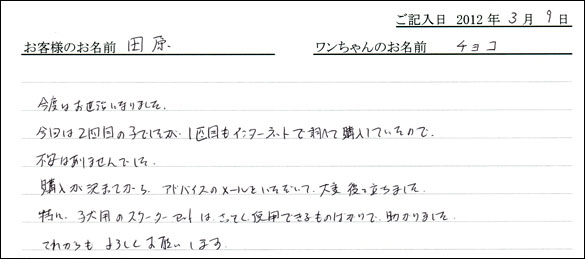 ご記入日 2012 年 3 月 9 日
お客様のお名前 田原 ワンちゃんのお名前 チョコ
今度はお世話になりました。
今回は2回目の子でしたが、1匹目もインターネットで初めて購入していたので、
不安はありませんでした。
購入が決まってから、アドバイスのメールをいただいて、大変役に立ちました。
特に、子犬用のスターターセットは、さっそく使用できるものばかりで、助かりました。
これからもよろしくお願いします。